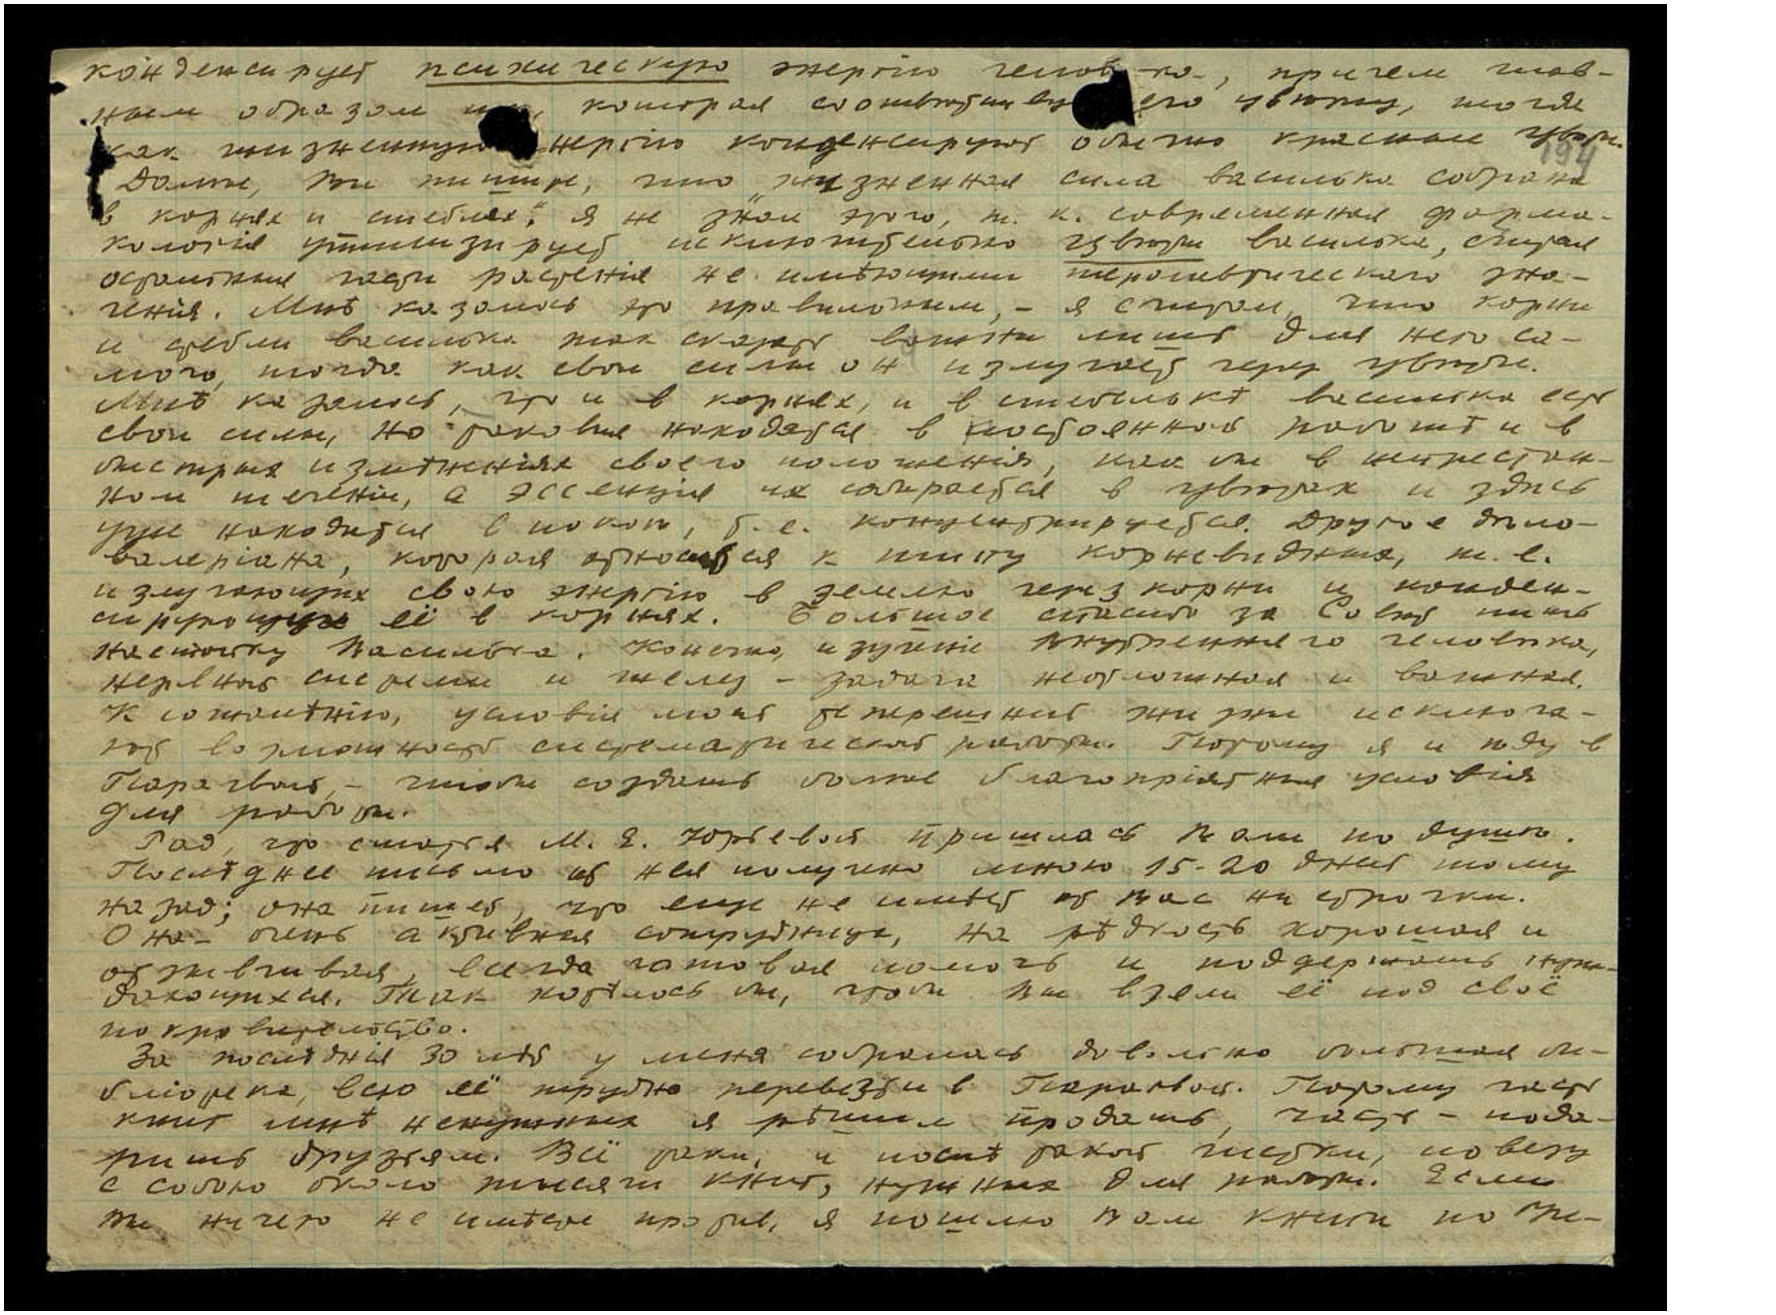 конденсирует психическую энергію человека, причем глав-
ным образом ту, которая соотвѣтствует его цвѣту, тогда
как жизненную энергію конденсируют обычно красные цвѣты.
194
Далѣе, Вы пишете, что „жизненная сила василька собрана
в корнях и стеблях“. Я не знал этого, т. к. современная фарма-
кологія утилизирует исключительно цвѣты василька, считая
остальныя части растенія не имѣющими терапевтическаго зна-
ченія. Мнѣ казалось это правильным, – я считал, что корни
и стебли василька так сказать важны лишь для него са-
мого, тогда как свои силы он излучает через цвѣты.
Мнѣ казалось, что и в корнях, и в стебелькѣ василька есть
свои силы, но таковыя находятся в постоянной работѣ и в
быстрых измѣненіях своего положенія, как бы в непрестан-
ном теченіи, а эссенція их собирается в цвѣтах и здѣсь
уже находится в покоѣ, т. е. концентрируется. Другое дѣло –
валеріана, которая относится к типу корневидных, т. е.
излучающих свою энергію в землю через корни и конден-
сирующих её в корнях. Большое спасибо за Совѣт пить
настойку Василька. Конечно, изученіе внутренняго человѣка,
нервной системы и желез – задача неотложная и важная.
К сожалѣнію, условія моей теперешней жизни исключа-
ют возможность систематической работы. Потому я и ѣду в
Парагвай, – чтобы создать болѣе благопріятныя условія
для работы.
Рад, что статья М. Е. Юрьевой пришлась Вам по душѣ.
Послѣднее письмо от нея получено мною 15-20 дней тому
назад; она пишет, что еще не имѣет от Вас ни строчки.
Она – очень активная сотрудница, на рѣдкость хорошая и
отзывчивая, всегда готовая помочь и поддержать нуж-
дающихся. Так хотѣлось бы, чтобы Вы взяли её под своё
покровительство.
За послѣднія 30 лѣт у меня собралась довольно большая би-
бліотека, всю её трудно перевезти в Парагвай. Потому часть
книг мнѣ ненужных я рѣшил продать, часть – пода-
рить друзьям. Всё таки, и послѣ такой чистки, повезу
с собою около тысячи книг, нужных для работы. Если
Вы ничего не имѣете против, я пошлю Вам книги по